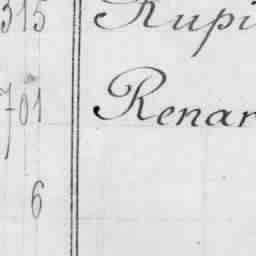 315 Rupi
701 Renar
6